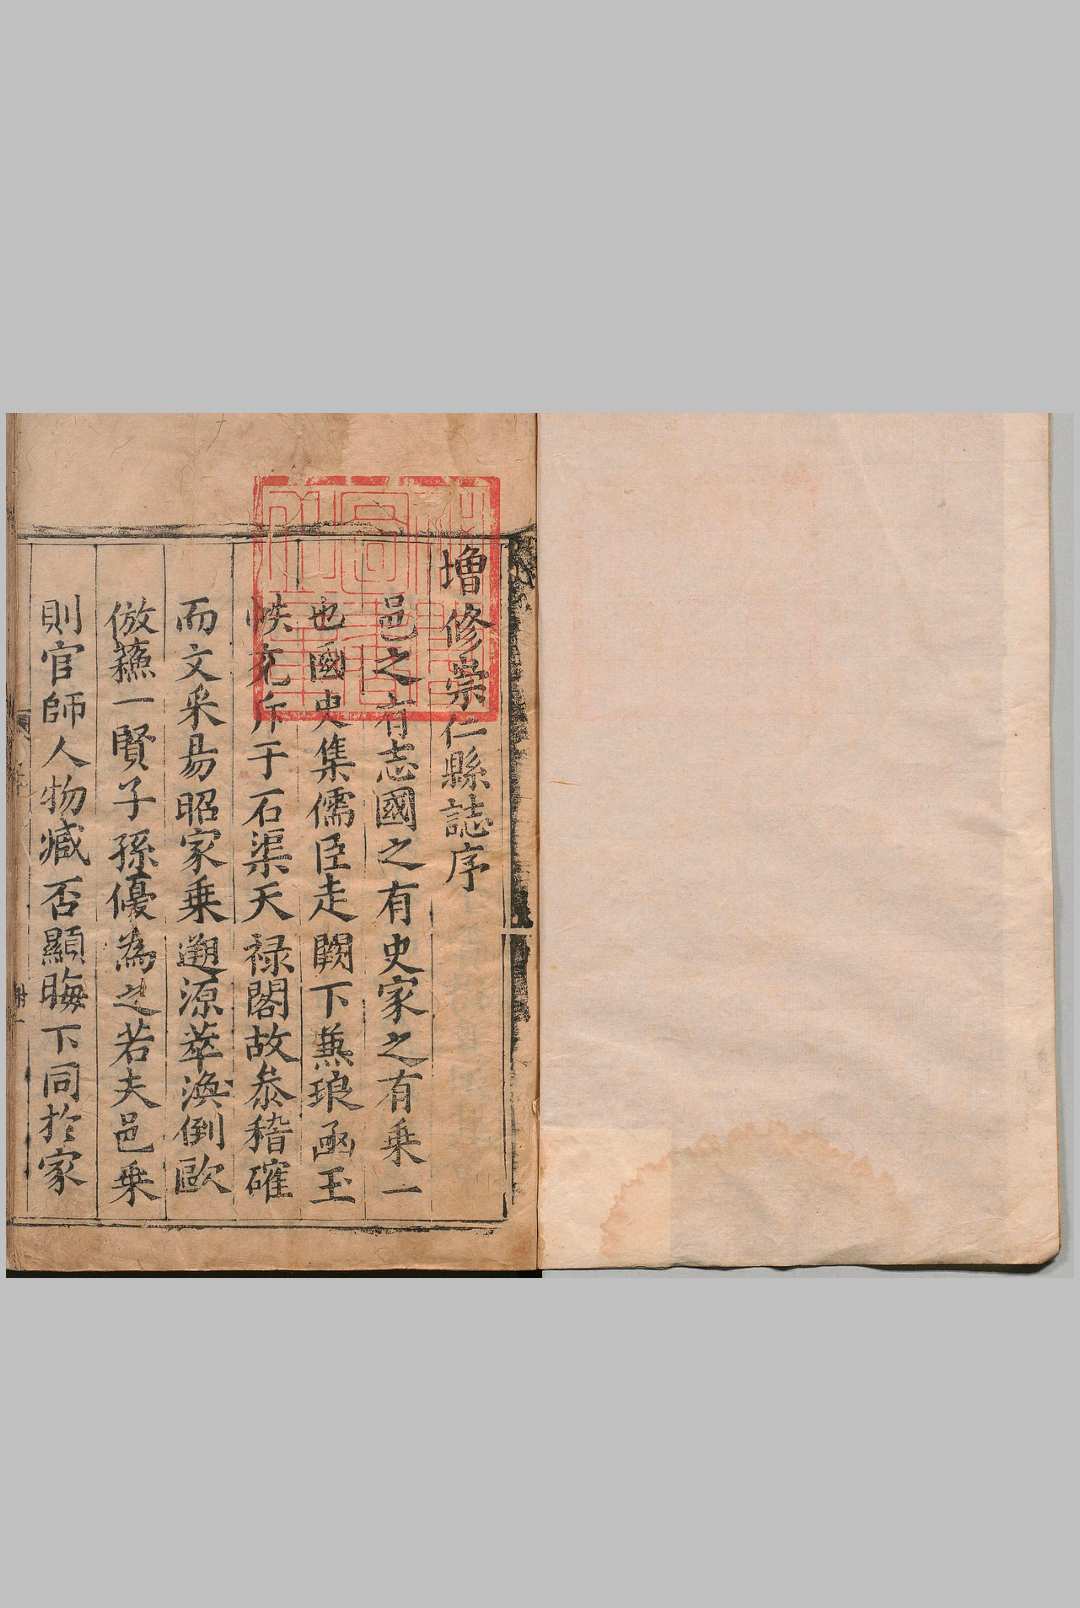 增修崇仁縣誌序
邑之有志國之有史家之有乗一
也國史集儒臣走闕下蕪琅函玉
帙充斥于石渠天禄閣故叅稽確
而文采易昭家乗遡源萃渙倒歐
倣蘓一賢子孫優為之若夫邑乗
則官師人物臧否顯晦下同扵家